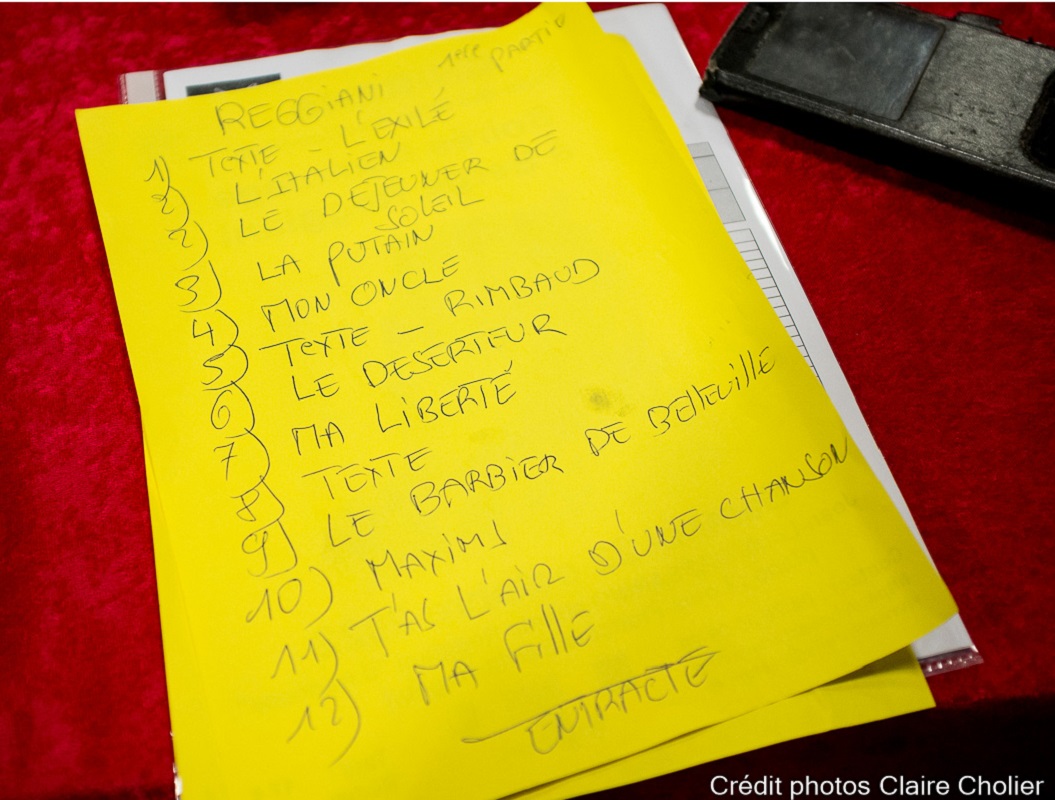 1ère PARTIE
REGGIANI
1) TEXTE - L'EXILÉ
2) L'ITALIEN
2) LE DEJEUNER DE
SOLEIL
3) LA PUTAIN
4) MON ONCLE
5) TEXTE - RIMBAUD
6) LE DESERTEUR
7) MA LIBERTÉ
8) TEXTE
9) LE BARBIER DE BELLEVILLE
10) MAXIM'S
11) T'AS L'AIR D'UNE CHANSON
12) MA FILLE
ENTRACTE
Crédit photos Claire Cholier